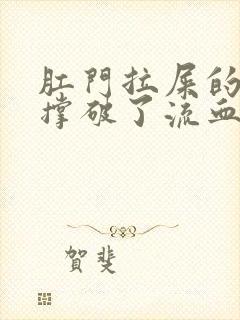 肛門拉屎的
撐破了流血
賀斐